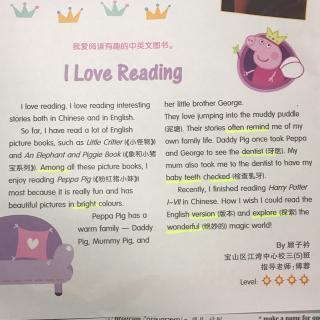 我爱阅读有趣的中英文图书。
I Love Reading
I love reading. I love reading interesting
stories both in Chinese and in English.
So far, I have read a lot of English
picture books, such as Little Critter (《小怪物》)
and An Elephant and Piggie Book (《小象和小猪
宝系列》). Among all these picture books, I
enjoy reading Peppa Pig (《粉红猪小妹》)
most because it is really fun and has
beautiful pictures in bright colours.
Peppa Pig has a
warm family — Daddy
Pig, Mummy Pig, and
her little brother George.
They love jumping into the muddy puddle
(泥塘). Their stories often remind me of my
own family life. Daddy Pig once took Peppa
and George to see the dentist (牙医). My
mum also took me to the dentist to have my
baby teeth checked (检查乳牙).
Recently, I finished reading Harry Potter
I–VII in Chinese. How I wish I could read the
English version (版本) and explore (探索) the
wonderful (绝妙的) magic world!
By 顾子衿
宝山区江湾中心校三(5)班
指导老师：傅蓉
Level:
* make a name for one